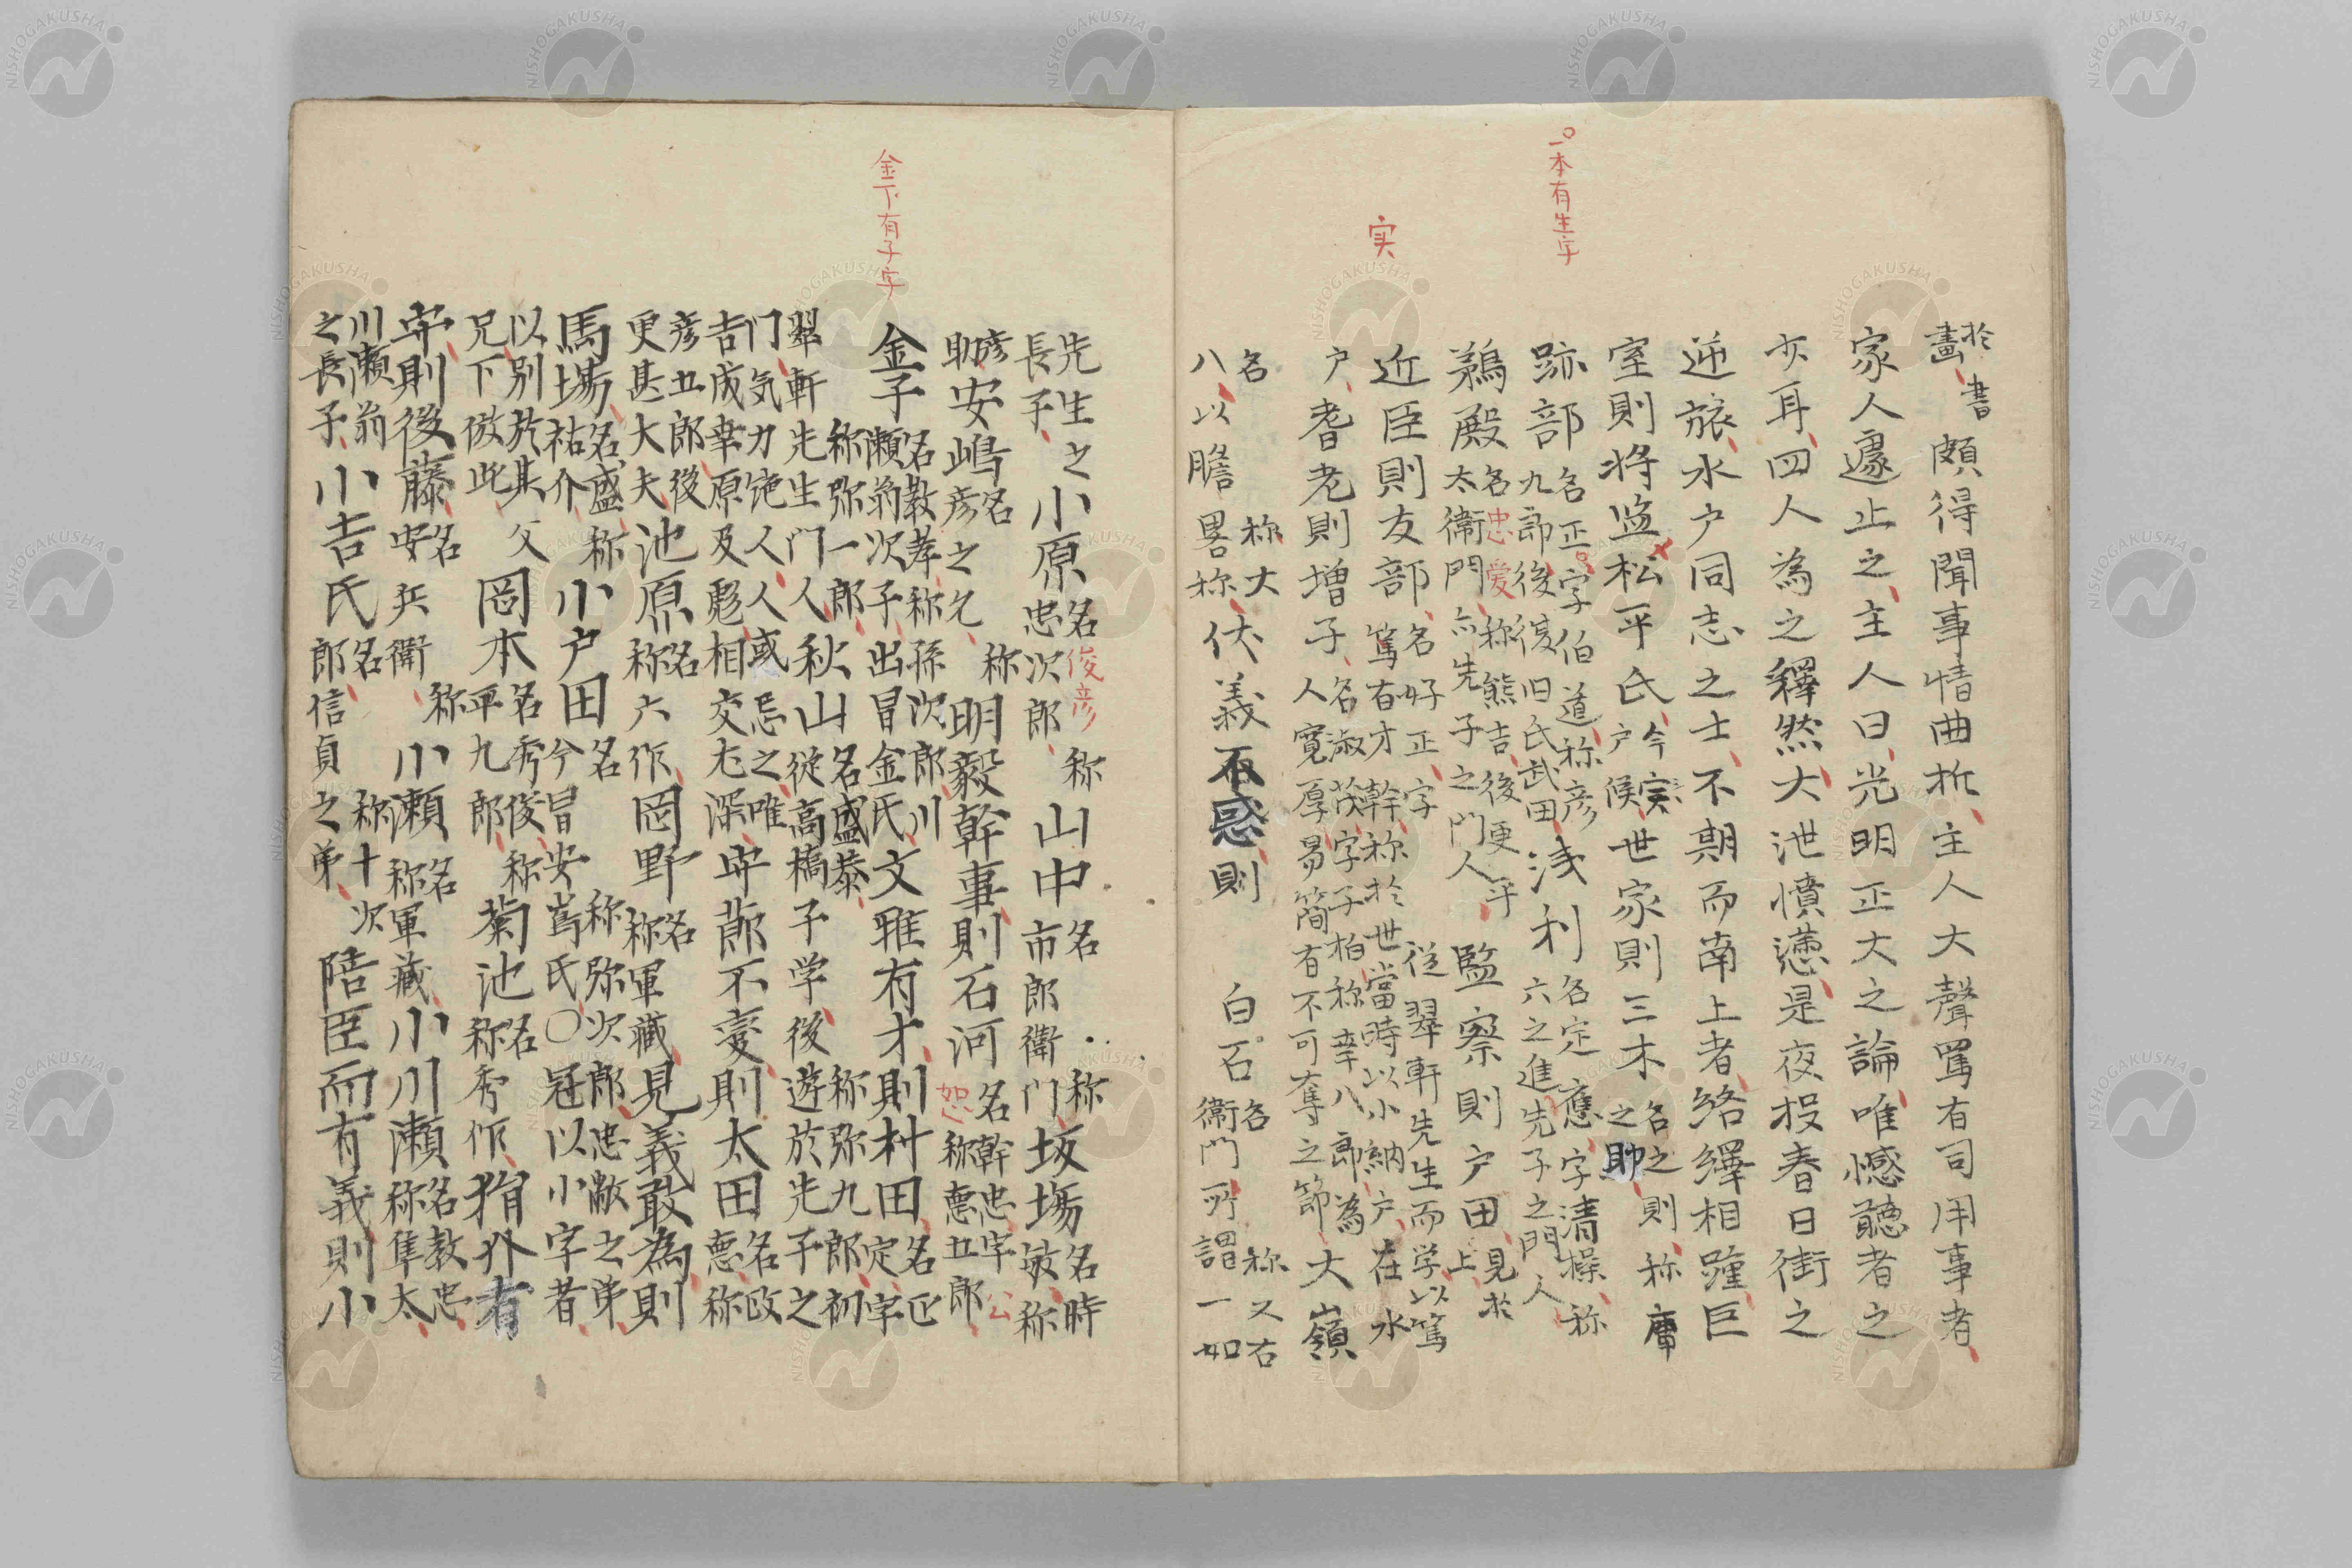 一本有生字
実
於畫書頗得聞事情曲折主人大聲罵有司用事者
家人遽止之主人曰光明正大之論唯憾聽者之
亦耳四人為之釋然大泄憤懣是夜投春日街之
逆旅水户同志之士不期而南上者絡繹相踵巨
室則将监松平氏今実户候世家則三木名之則称庫之助
跡部名正字伯道称彦九郎後復旧氏武田浅利名定應字清操称六之進先子之門人
鵜殿名忠愛称熊吉後更平太衛門亦先子之門人監察則户田見於上
近臣則友部名好正字篤有才幹称於世當時以小納户在水户
從翠軒先生而学以篤
耆老則增子名淑茂字子柏称幸八郎為人寛厚易簡有不可奪之節大嶺
名称大八以膽畧称伏義不惑則白石名称又右衛門所謂一如
金下有子字
先生之長子小原名俊彦称忠次郎山中名称市郎衛门坂場名時敏称
彦助安嶋名彦之允称明毅幹事則石河名幹忠字公恕称悳五郎
金子名教孝称孫次郎川瀬翁次子出冒金氏称弥一郎文雅有才則村田名正定字
翠軒先生門人秋山名盛恭称弥九郎初従高橋子学後遊於先子之
门気力艳人人或忌之唯吉成幸原及彪相交尤深宇莭不変則太田名政悳称
彦五郎後更甚大夫池原名称六作岡野名称軍藏見義敢為則
馬場名盛祐称介小户田名称弥次郎忠敞之弟今冒安嶌氏〇冠以小字者
以别於其父兄下倣此岡本名秀俊称平九郎菊池名称秀作狷介有
守則後藤名称安兵衛小瀬名称軍藏小川瀬名教忠称隼太
川瀬翁之長子小吉氏名称十次郎信貞之弟陪臣而有義則小